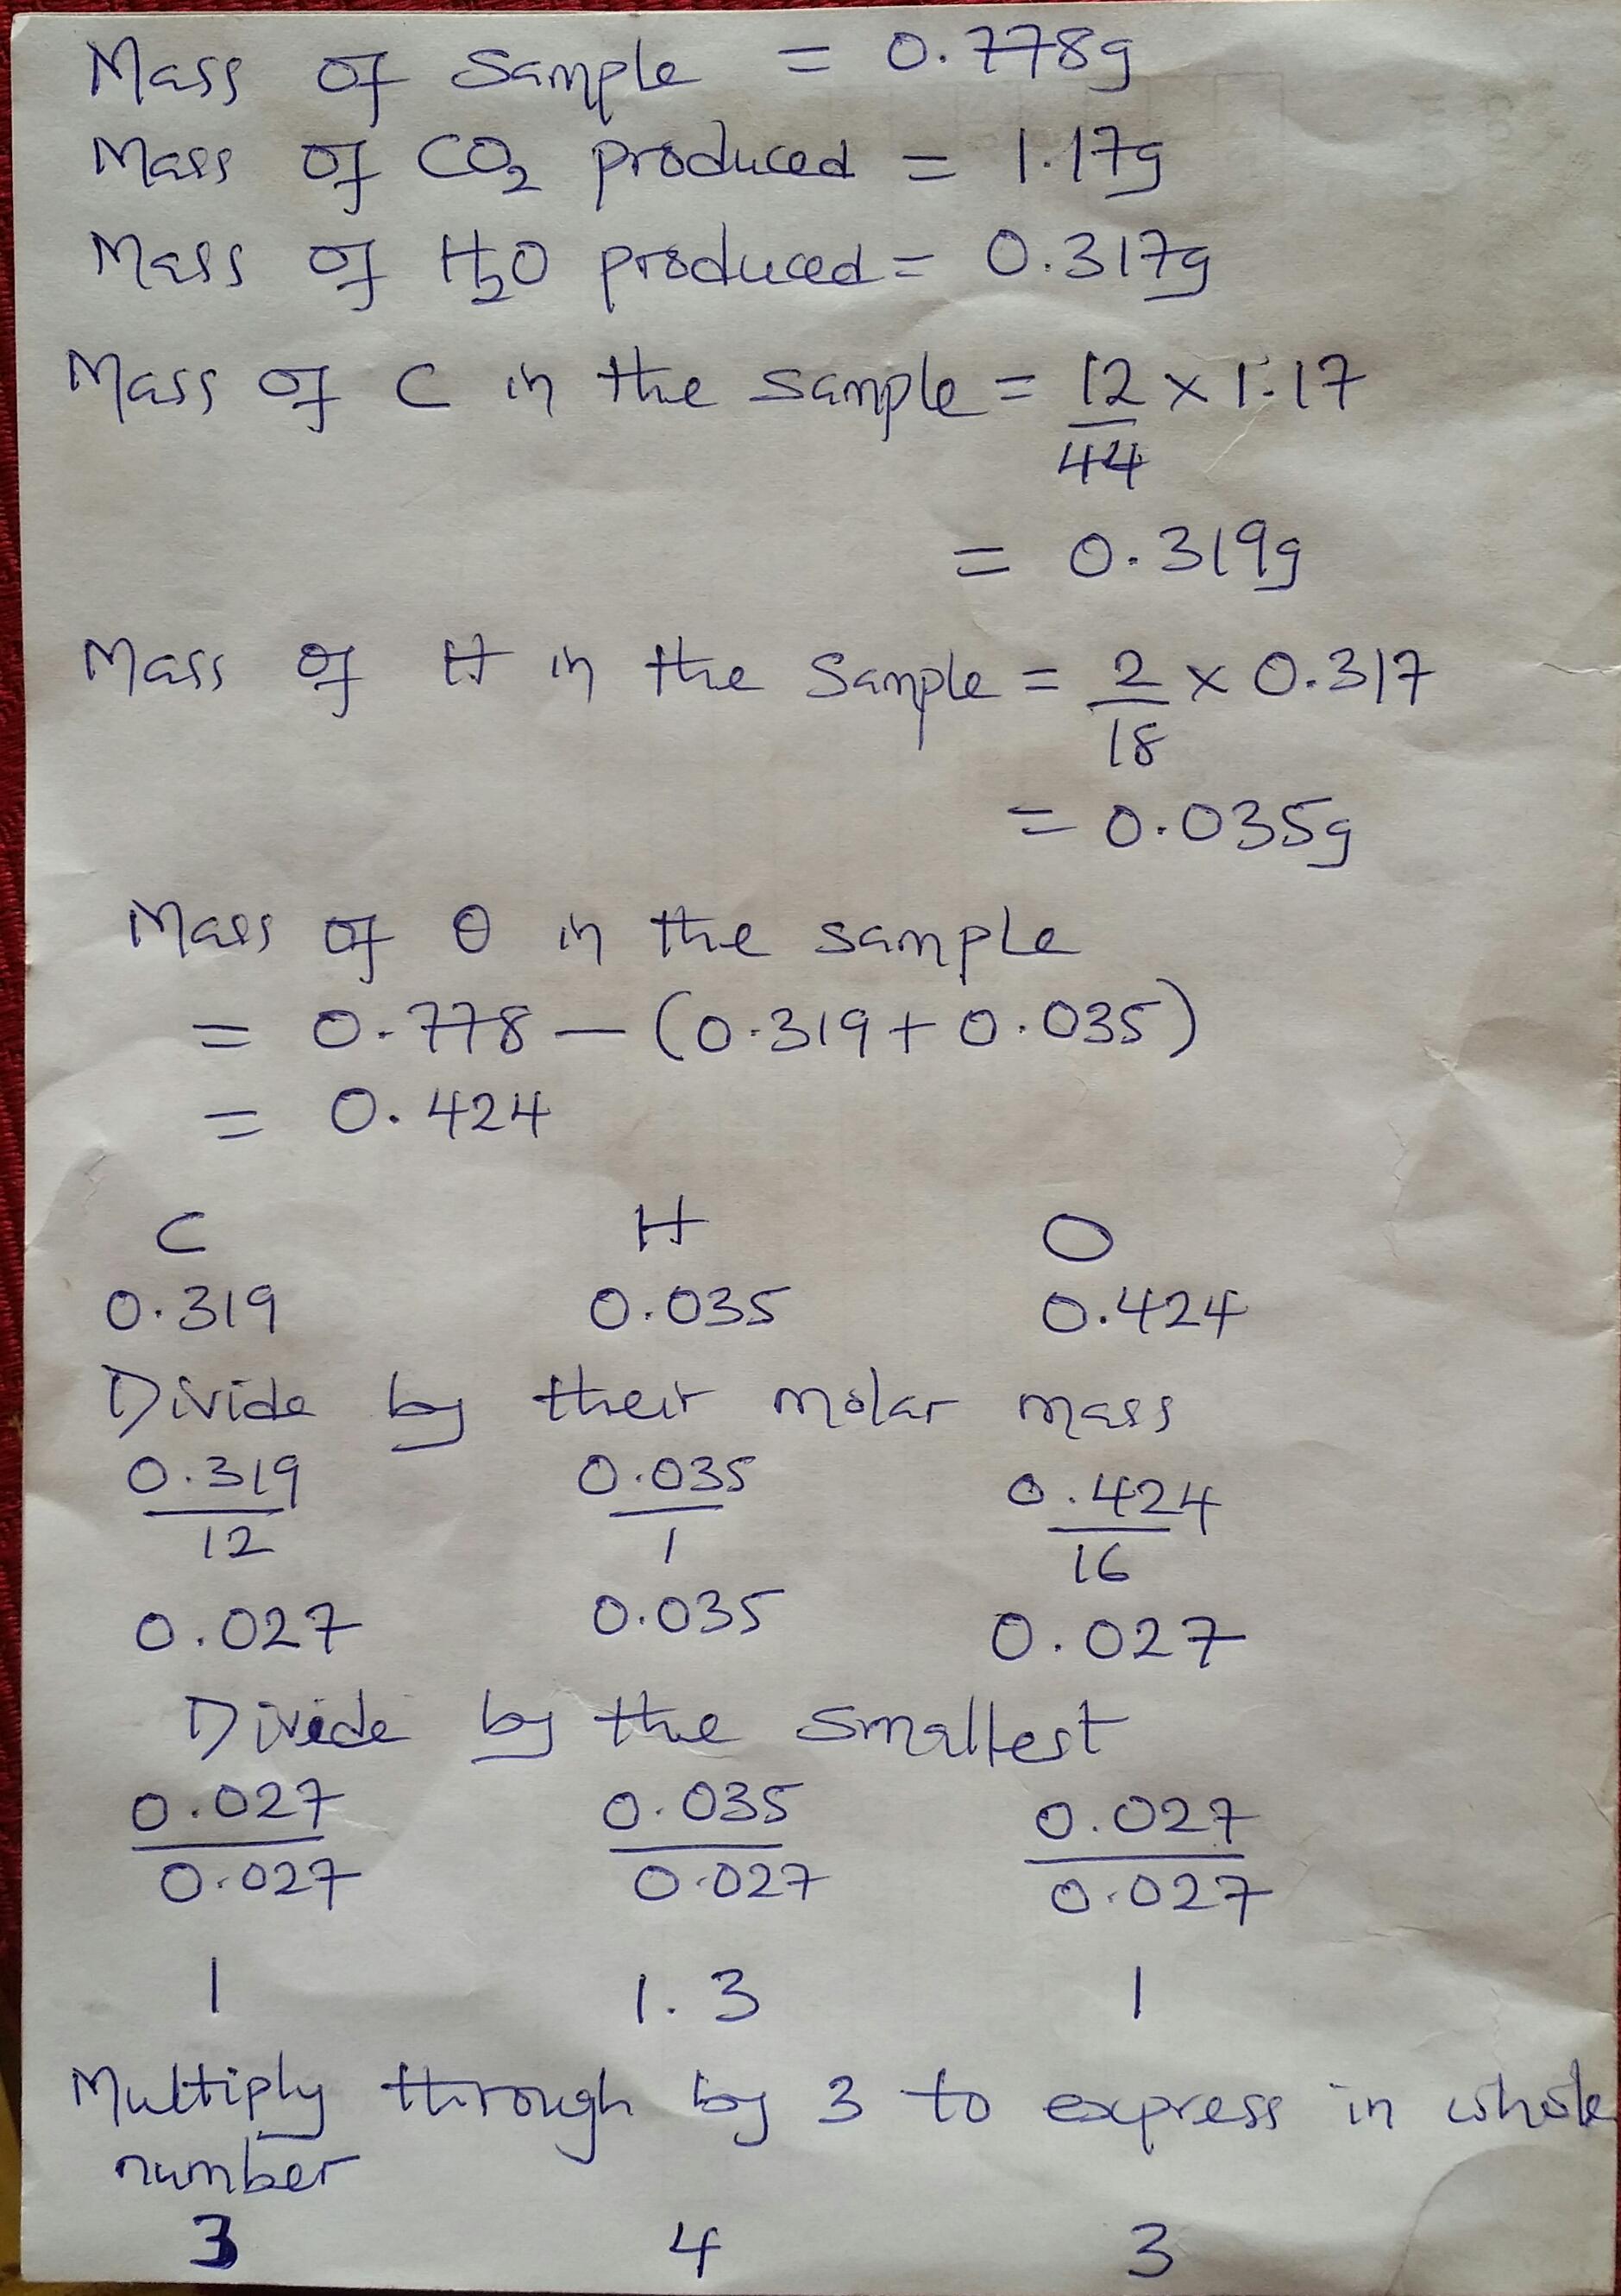 Mass of Sample = 0.778g
Mass of CO₂ produced = 1.17g
Mass of H₂O produced = 0.317g
Mass of C in the sample = 12/44 × 1.17
= 0.319g
Mass of H in the Sample = 2/18 × 0.317
= 0.035g
Mass of O in the sample
= 0.778 – (0.319 + 0.035)
= 0.424
C H O
0.319 0.035 0.424
Divide by their molar mass
0.319/12 0.035/1 0.424/16
0.027 0.035 0.027
Divide by the smallest
0.027/0.027 0.035/0.027 0.027/0.027
1 1.3 1
Multiply through by 3 to express in whole
number
3 4 3